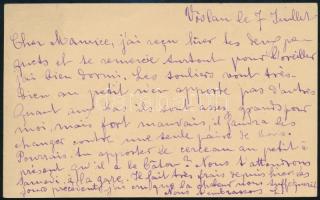 Vislan le 7 Juillet
Cher Maurice, j'ai reçu hier tes deux pa-
quets et te remercie surtout pour l'oreiller
j'ai bien dormi. Les souliers vont très-
bien au petit n'en apporte pas d'autres
Quant aux bas ils sont assez grands pour
moi, mais fort mauvais, il faudra les
changer contre une seule paire de bons.
Pourrais-tu apporter le cerceau au petit à
présent qu'il a le bâton? Nous t'attendrons
samedi à la gare. Il fait très frais depuis hier
jours précédents j'ai cru que la chaleur nous
Nous t'embrassons